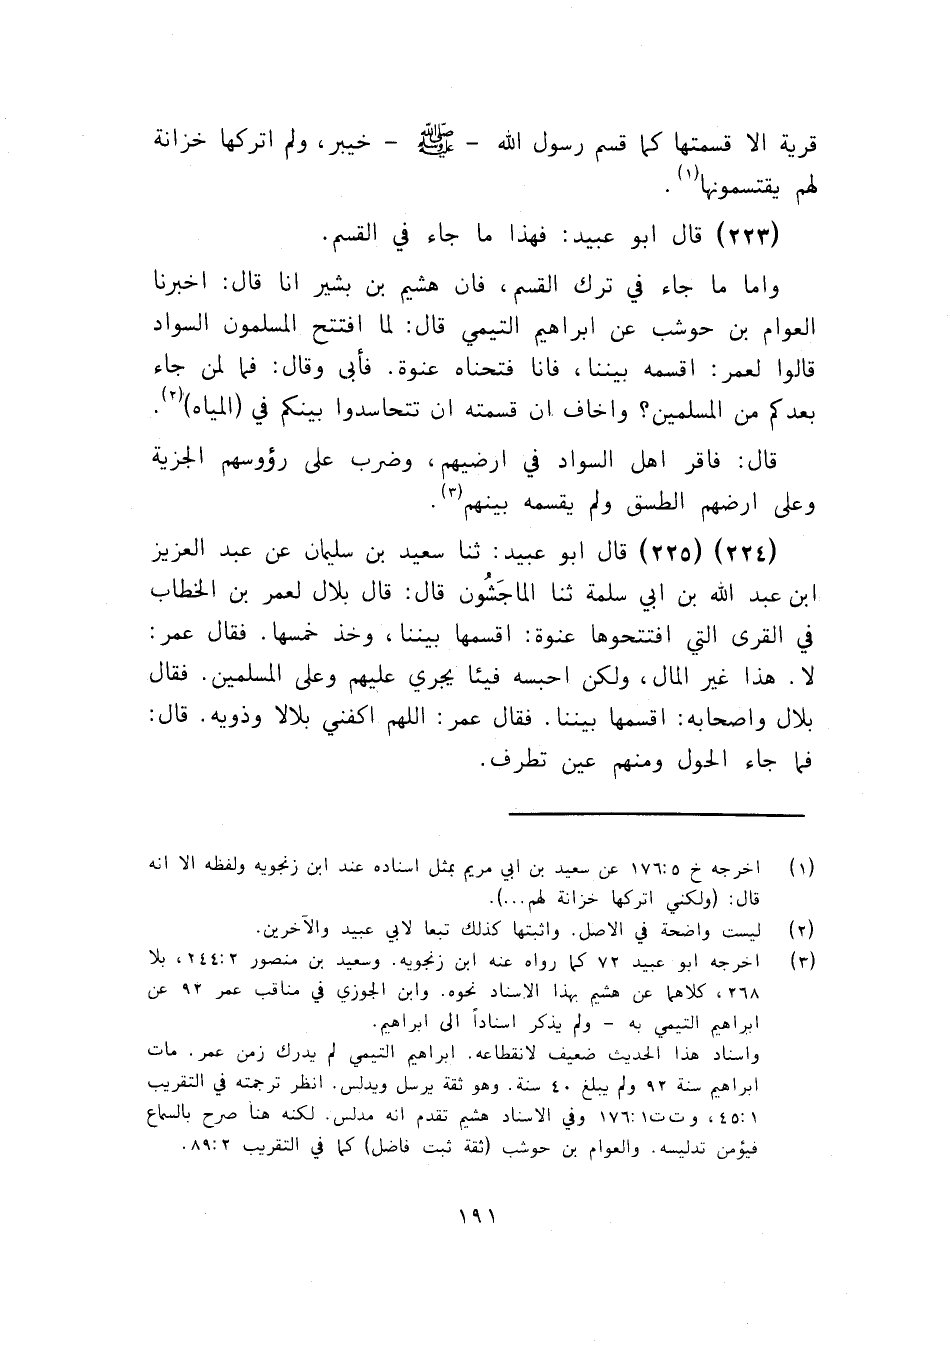 قرية الا قسمتها كما قسم رسول الله - ﷺ - خيبر، ولم اتركها خزانة
لهم يقتسمونها(١).
(٢٢٣) قال ابو عبيد: فهذا ما جاء في القسم.
واما ما جاء في ترك القسم، فان هشيم بن بشير انا قال: اخبرنا
العوام بن حوشب عن ابراهيم التيمي قال: لما افتتح المسلمون السواد
قالوا لعمر: اقسمه بيننا، فانا فتحناه عنوة. فأبى وقال: فما لمن جاء
بعدكم من المسلمين؟ واخاف ان قسمته ان تتحاسدوا بينكم في (المياه)(٢).
قال: فاقر اهل السواد في ارضيهم، وضرب على رؤوسهم الجزية
وعلى ارضهم الطسق ولم يقسمه بينهم(٣).
(٢٢٤) (٢٢٥) قال ابو عبيد: ثنا سعيد بن سليمان عن عبد العزيز
ابن عبد الله بن ابي سلمة ثنا الماجَشُون قال: قال بلال لعمر بن الخطاب
في القرى التي افتتحوها عنوة: اقسمها بيننا، وخذ خمسها. فقال عمر:
لا. هذا غير المال، ولكن احبسه فيئا يجري عليهم وعلى المسلمين. فقال
بلال واصحابه: اقسمها بيننا. فقال عمر: اللهم اكفني بلالا وذويه. قال:
فما جاء الحول ومنهم عين تطرف.
(١) اخرجه خ ٥:١٧٦ عن سعيد بن ابي مريم بمثل اسناده عند ابن زنجويه ولفظه الا انه
قال: (ولكني اتركها خزانة لهم...).
(٢) ليست واضحة في الاصل. واثبتها كذلك تبعا لابي عبيد والآخرين.
(٣) اخرجه ابو عبيد ٧٢ كما رواه عنه ابن زنجويه. وسعيد بن منصور ٢:٢٤٤، بلا
٢٦٨، كلاهما عن هشيم بهذا الاسناد نحوه. وابن الجوزي في مناقب عمر ٩٢ عن
ابراهيم التيمي به - ولم يذكر اسناداً الى ابراهيم.
واسناد هذا الحديث ضعيف لانقطاعه. ابراهيم التيمي لم يدرك زمن عمر. مات
ابراهيم سنة ٩٢ ولم يبلغ ٤٠ سنة. وهو ثقة يرسل ويدلس. انظر ترجمته في التقريب
١:٤٥، و ت ت ١:١٧٦ وفي الاسناد هشيم تقدم انه مدلس. لكنه هنا صرح بالسماع
فيؤمن تدليسه. والعوام بن حوشب (ثقة ثبت فاضل) كما في التقريب ٢:٨٩.
١٩١